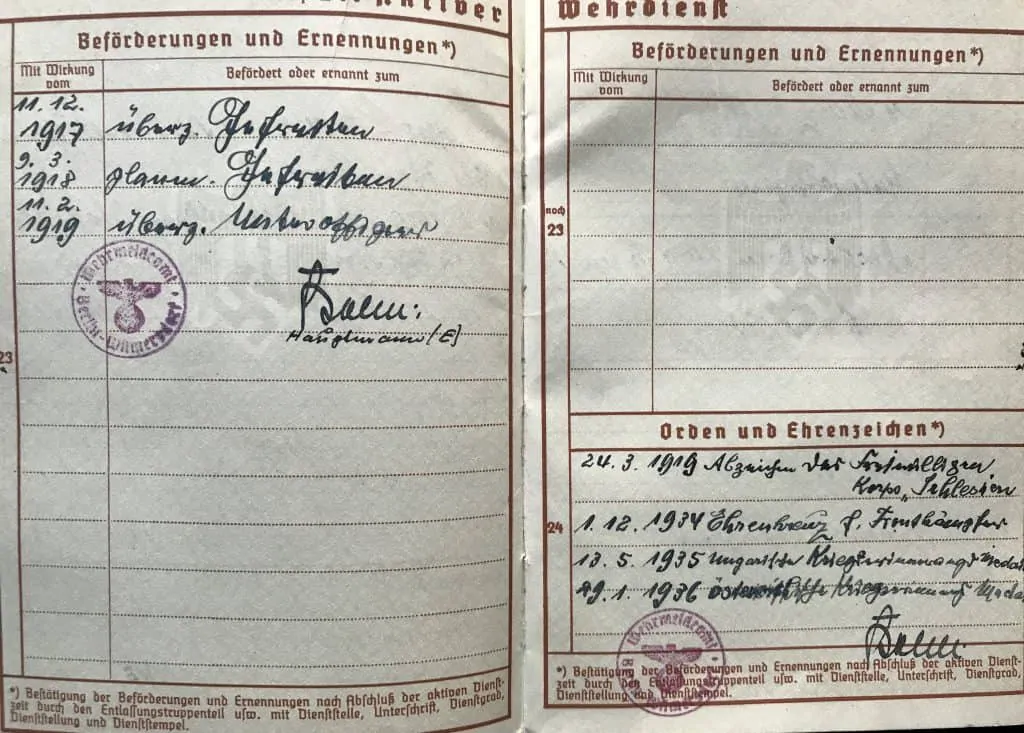 Aktiver
Beförderungen und Ernennungen*)
Mit Wirkung vom
Befördert oder ernannt zum
11. 12.
1917 überz. Gefreiten
9. 3.
1918 planm. Gefreiten
11. 2.
1919 überz. Unteroffizier
Wehrmeldeamt
Berlin-Wilmersdorf
Hauptmann (E)
23
*) Bestätigung der Beförderungen und Ernennungen nach Abschluß der aktiven Dienst-
zeit durch den Entlassungstruppenteil usw. mit Dienststelle, Unterschrift, Dienstgrad,
Dienststellung und Dienststempel.
Wehrdienst
Beförderungen und Ernennungen*)
Mit Wirkung vom
Befördert oder ernannt zum
noch
23
Orden und Ehrenzeichen*)
24. 3. 1919 Abzeichen des Freiwilligen
Korps „Schlesien
24
1. 12. 1934 Ehrenkreuz f. Frontkämpfer
13. 5. 1935 Ungarische Kriegserinnerungs Medai
29. 1. 1936 österreichische Kriegserinnerungs Meda
Wehrmeldeamt
*) Bestätigung der Beförderungen und Ernennungen nach Abschluß der aktiven Dienst-
zeit durch den Entlassungstruppenteil usw. mit Dienststelle, Unterschrift, Dienstgrad,
Dienststellung und Dienststempel.